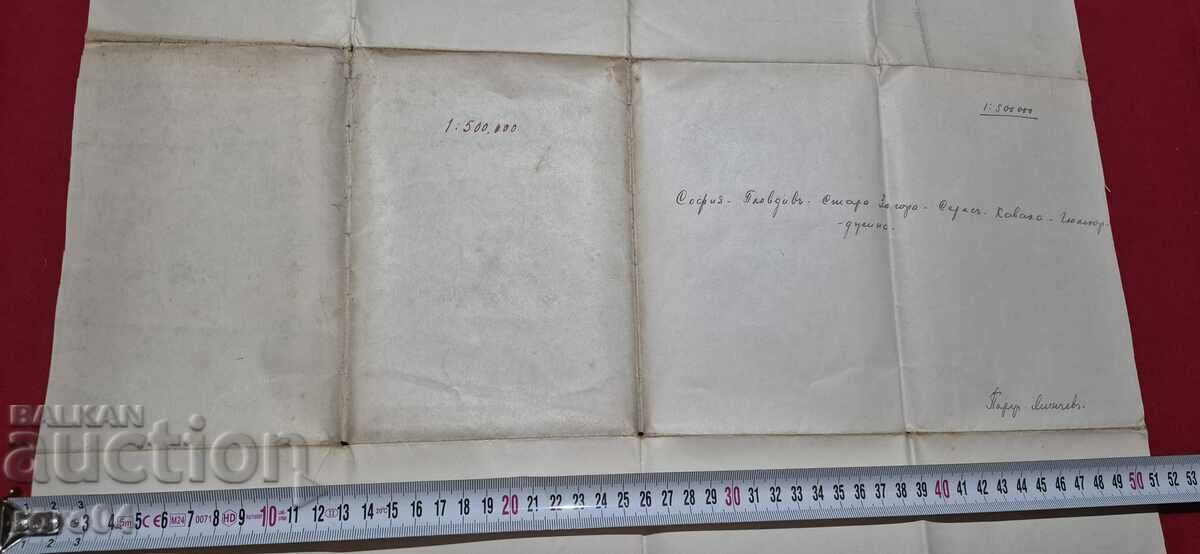 1:500,000
1:500000
София - Пловдивъ - Стара Загора - Сересъ - Кавала - Гюмюр-
-джина.
Пору.
BALKAN
auction
1 2 3 4 5 6 7 8 9 10 11 12 13 14 15 16 17 18 19 20 21 22 23 24 25 26 27 28 29 30 31 32 33 34 35 36 37 38 39 40 41 42 43 44 45 46 47 48 49 50 51 52 53
5m CE M24 0071 HD 20°C
1 2 3